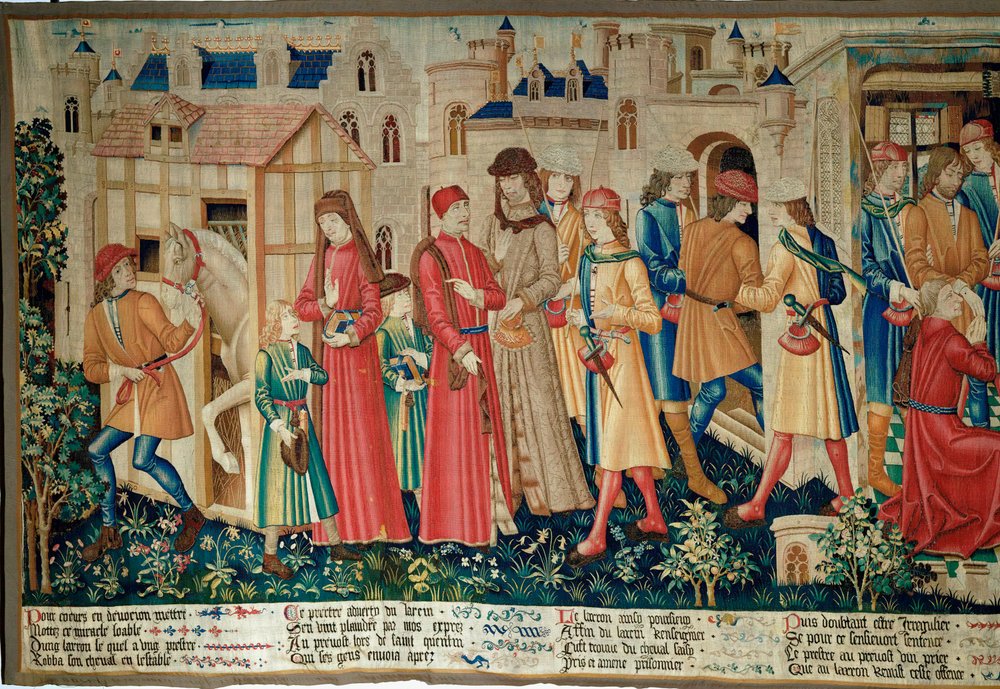 Pour coeurs en devocion mettre
Nottez ce miracle loable
Qung larron le quel a vng prestre
Robba son cheval en lestable
Ce prestre adverty du larcin
Sen vint plaindre par mos exprez
Au prevost lors de saint quentin
Qui ses gens envoia aprez
Le larron ainsy poursieuy
Affin du larcin Renseignier
Fust trouve du cheval saisy
Pris et amene prisonnier
Puis doubtant estre Irregulier
Se pour ce sensieuoit sentence
Le prestre au prevost vint prier
Que au larron remist ceste offence